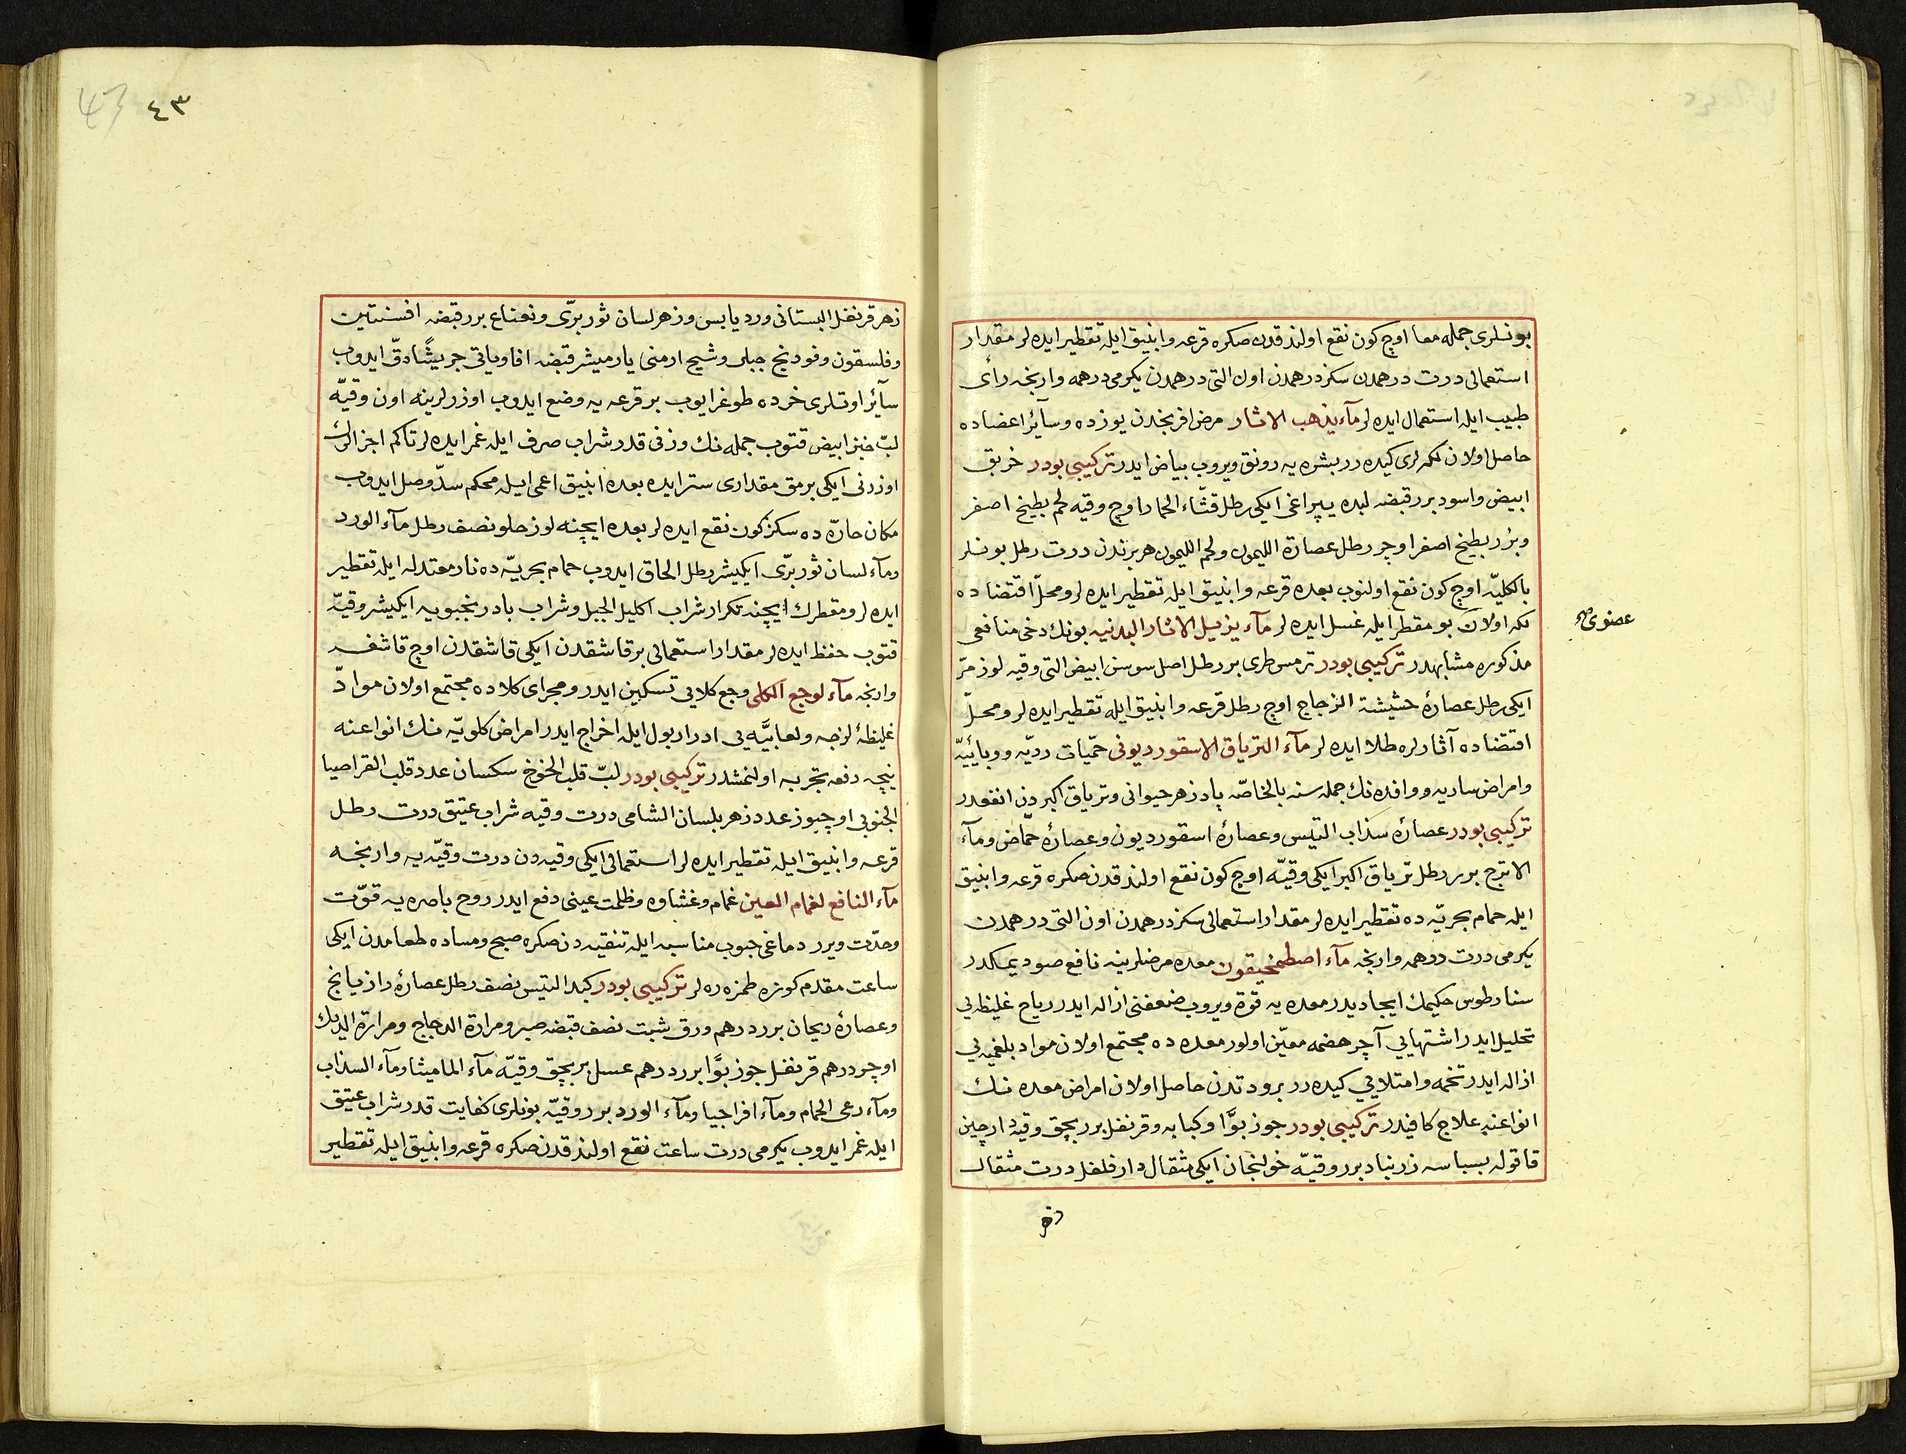 بونلری جمله معا اوچ کون نقع اولندقدن صکره قرعه وانبیق ایله تقطیر ایده لر مقدار
استعمالی درت درهمدن سکز درهمدن اون التی درهمدن یکرمی درهمه وارنجه رأی
طبیب ایله استعمال ایده لر مآء یذهب الاثار مرض افرنجدن یوزده وسآئر اعضاده
حاصل اولان لکه لری کیدرر بشره یه رونق ویروب بیاض ایدر ترکیبی بودر خربق
ابیض واسود برر قبضه لبده یپراغی ایکی رطل قثّاء الحمار اوچ وقیه لحم بطیخ اصفر
وبزر بطیخ اصفر اوچر رطل عصارة اللیمون ولحم اللیمون هر برندن درت رطل بونلر
بالکلیّه اوچ کون نقع اولنوب بعده قرعه وانبیق ایله تقطیر ایده لر ومحلّ اقتضاده
لکه اولان بو مقطر ایله غسل ایده لر مآء یزیل الاثار البدنیه بونك دخی منافعی
عضوی
مذکوره مشابهدر ترکیبی بودر ترمس طری بر رطل اصل سوسن ابیض التی وقیه لوز مرّ
ایکی رطل عصارۀ حشیشة الزجاج اوچ رطل قرعه وانبیق ایله تقطیر ایده لر ومحلّ
اقتضاده آثارلره طلا ایده لر مآء التریاق الاسقوردیونی حمّیات ردیّه ووبائیّه
وامراض ساریه ووافده نك جمله سنه بالخاصّه پادزهر حیوانی وتریاق اکبردن انفعدر
ترکیبی بودر عصارۀ سذاب التیس وعصارۀ اسقوردیون وعصارۀ حمّاض ومآء
الاترج برر رطل تریاق اکبر ایکی وقیّه اوچ کون نقع اولندقدن صکره قرعه وانبیق
ایله حمام بحریّه ده تقطیر ایده لر مقدار استعمالی سکز درهمدن اون التی درهمدن
یکرمی درت درهمه وارنجه مآء اصطمخیقون معده مرضلرینه نافع صودیمکدر
سنارطوس حکیمك ایجادیدر معده یه قوة ویروب ضعفنی ازاله ایدر ریاح غلیظه یی
تحلیل ایدر اشتهایی آچر هضمه معیّن اولور معده ده مجتمع اولان مواد بلغمیه یی
ازاله ایدر تخمه وامتلایی کیدرر برودتدن حاصل اولان امراض معده نك
انواعنه علاج کافیدر ترکیبی بودر جوز بوّا وکبابه وقرنفل برر بچق وقیه دارچین
قاقوله بسباسه زرنباد برر وقیّه خولنجان ایکی مثقال دارفلفل درت مثقال
زهر
٤٣
43
زهر قرنفل البستانی ورد یابس وزهر لسان ثور برّی ونعناع برر قبضه افسنتین
وفلسقون وفودنج جبلی وشیح ارمنی یارمیشر قبضه افاویاتی جریشًا دقّ ایدوب
سآئر اوتلری خرده طوغرایوب بر قرعه یه وضع ایدوب اوزرلرینه اون وقیّه
لبّ خبز ابیض قتوب جمله نك وزنی قدر شراب صرف ایله غمر ایده لر تاکم اجزالرك
اوزرنی ایکی برمق مقداری ستر ایده بعده انبیق اعمی ایله محکم سدّ وصل ایدوب
مکان حارّه ده سکز کون نقع ایده لر بعده ایچنه لوز حلو نصف رطل مآء الورد
ومآء لسان ثور برّی ایکیشر رطل الحاق ایدوب حمام بحریّه ده نار معتدله ایله تقطیر
ایده لر ومقطرك ایچنه تکرار شراب اکلیل الجبل وشراب بادرنجبویه ایکیشر وقیّه
قتوب حفظ ایده لر مقدار استعمالی بر قاشقدن ایکی قاشقدن اوچ قاشغه
وارنجه مآء لوجع الکلی وجع کلایی تسکین ایدر ومجرای کلاده مجتمع اولان موادّ
غلیظۀ لزجه ولعابیّه یی ادرار بول ایله اخراج ایدر امراض کلویّه نك انواعنه
نیچه دفعه تجربه اولنمشدر ترکیبی بودر لبّ قلب الخوخ سکسان عدد قلب القراصیا
الجنوبی اوچیوز عدد زهر بلسان الشامی درت وقیه شراب عتیق درت رطل
قرعه وانبیق ایله تقطیر ایده لر استعمالی ایکی وقیه دن درت وقیّه یه وارنجه
مآء النافع لغمام العین غمام وغشاوه وظلمت عینی دفع ایدر روح باصره یه قوّت
وحدّت ویرر دماغی حبوب مناسبه ایله تنقیه دن صکره صبح ومساده طعامدن ایکی
ساعت مقدم کوزه طمزه ره لر ترکیبی بودر کبد التیس نصف رطل عصارۀ رازیانج
وعصارۀ ریحان برر درهم ورق شبت نصف قبضه صبر ومرارة الدجاج ومرارة الدیك
اوچر درهم قرنفل جوز بوّا برر درهم عسل بر بچق وقیّه مآء المامیثا ومآء السذاب
ومآء رعی الحمام ومآء افراجیا ومآء الورد برر وقیّه بونلری کفایت قدر شراب عتیق
ایله غمر ایدوب یکرمی درت ساعت نقع اولندقدن صکره قرعه وانبیق ایله تقطیر